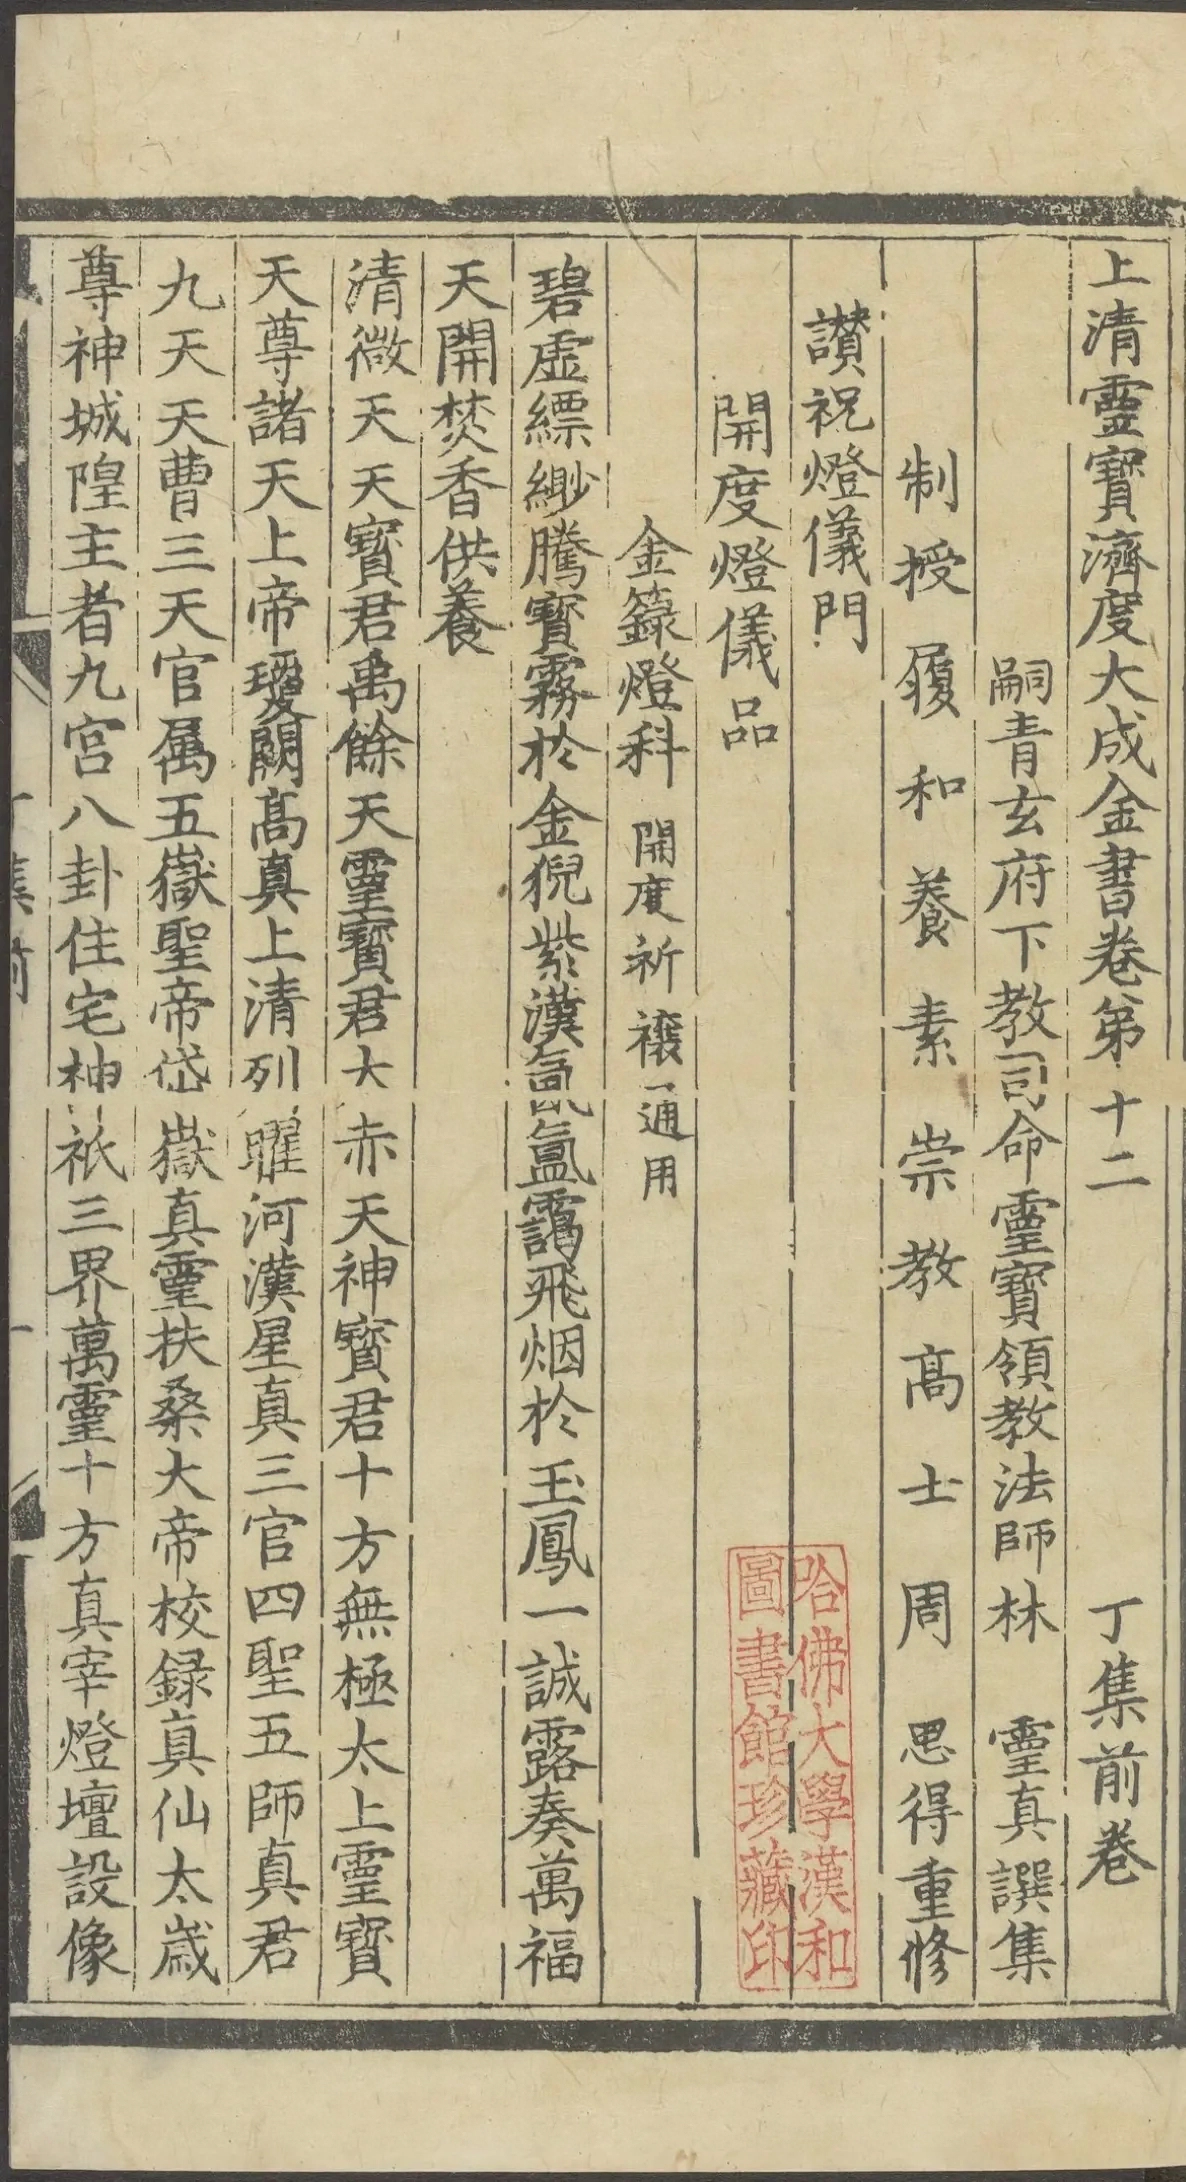 上清靈寶濟度大成金書卷第十二 丁集前卷
嗣青玄府下教司命靈寶領教法師林 靈真譔集
制授履和養素崇教高士周 思得重修
讃祝燈儀門
開度燈儀品
金籙燈科 開度祈禳通用
碧虛縹緲騰寳霧於金猊紫漢氤氳靄飛烟於玉鳳一誠露奏萬福
天開焚香供養
清微天天寳君禹餘天靈寳君大赤天神寳君十方無極太上靈寳
天尊諸天上帝瓊闕高真上清列曜河漢星真三官四聖五師真君
九天天曹三天官属五嶽聖帝岱嶽真靈扶桑大帝校録真仙太歳
尊神城隍主者九宫八卦住宅神祇三界萬靈十方真宰燈壇設像
丁集前
一
哈佛大學漢和
圖書館珍藏印